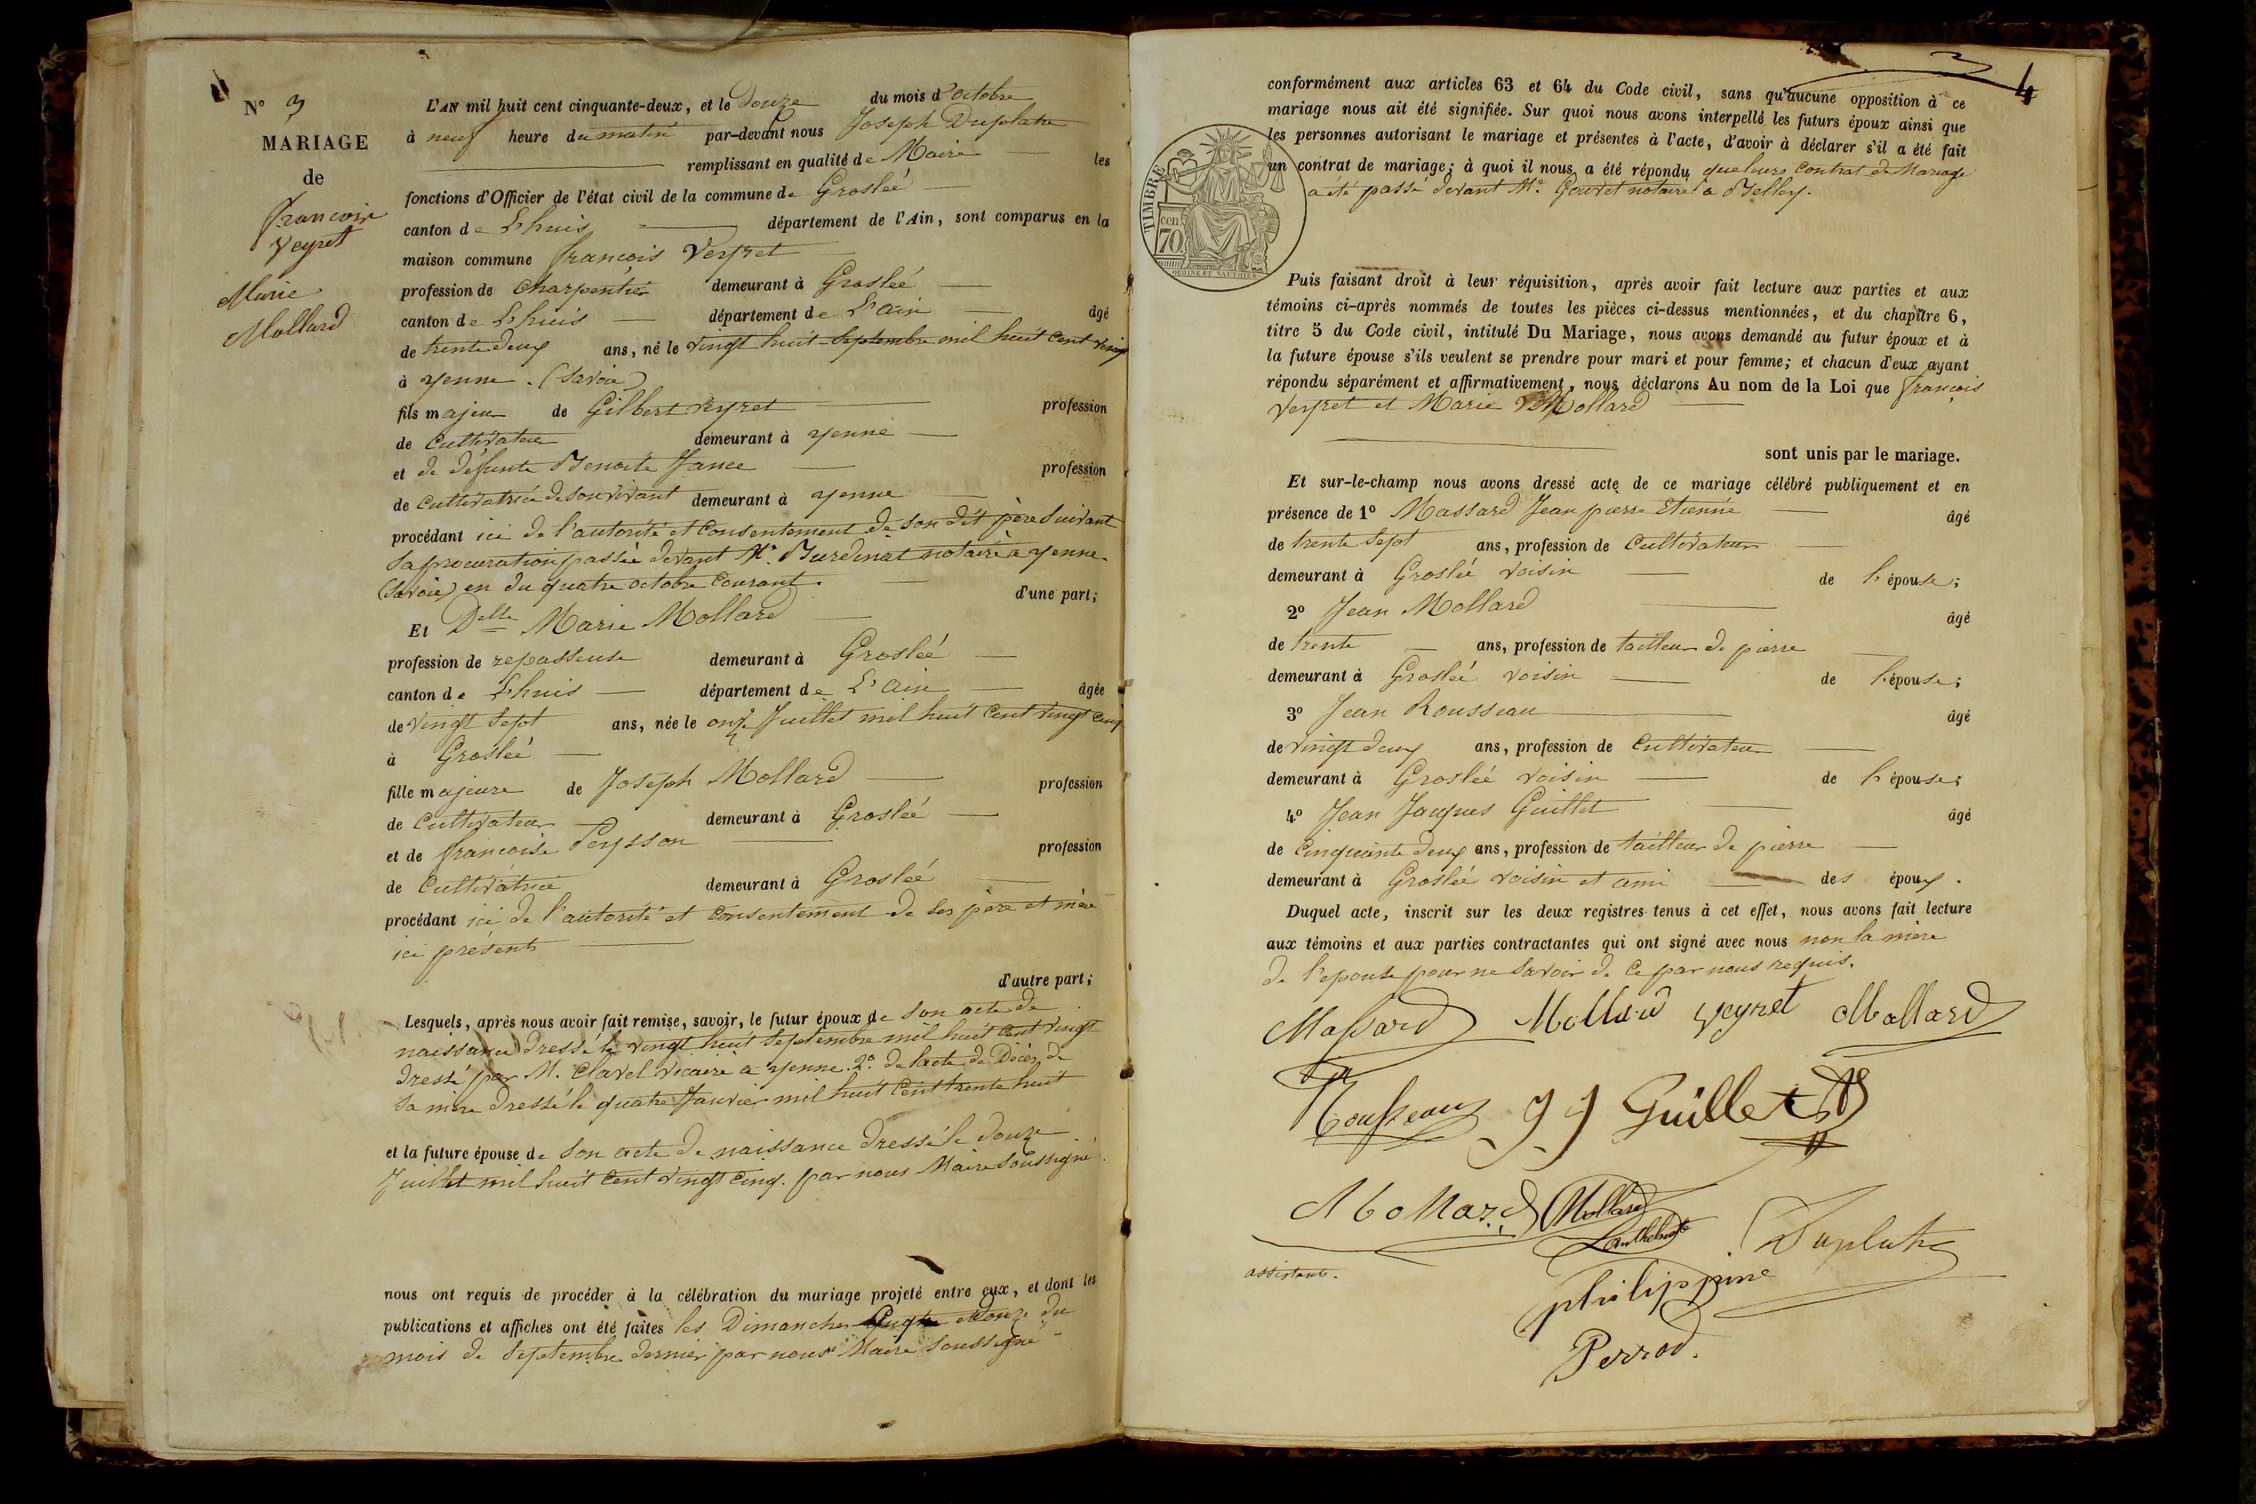 N° 3
MARIAGE
de
François
Veyret
Marie
Mollard
L'AN mil huit cent cinquante-deux, et le Douze du mois d'octobre
à neuf heure du matin par-devant nous Joseph Duplatre
remplissant en qualité de Maire les
fonctions d'Officier de l'état civil de la commune de Groslée
canton de L'huis département de l'Ain, sont comparus en la
maison commune françois Veyret
profession de charpentier demeurant à Groslée
canton de L'huis département de L'ain âgé
de trente deux ans, né le vingt huit septembre mil huit cent vingt
à yenne. (Savoie)
fils majeur de Gilbert Veyret profession
de cultivateur demeurant à yenne
et de défunte Benoite Jance profession
de cultivatrice de son vivant demeurant à yenne
procédant ici de l'autorité et consentement de son dit père suivant
sa procuration passée devant Me. Burdinat notaire à yenne
(Savoie) en du quatre octobre courant. d'une part;
Et Delle Marie Mollard
profession de repasseuse demeurant à Groslée
canton de L'huis département de L'ain âgée
de vingt sept ans, née le onze Juillet mil huit cent vingt cinq
à Groslée
fille majeure de Joseph Mollard profession
de cultivateur demeurant à Groslée
et de françoise Peysson profession
de cultivatrice demeurant à Groslée
procédant ici de l'autorité et consentement de ses père et mère
ici présents
d'autre part;
Lesquels, après nous avoir fait remise, savoir, le futur époux de son acte de
naissance dressé le vingt huit septembre mil huit cent vingt
dressé par M. Clavel vicaire à yenne. 2° de l'acte de Décès de
sa mère dressé le quatre Janvier mil huit cent trente huit
et la future épouse de son acte de naissance dressé le douze
Juillet mil huit cent vingt cinq. par nous Maire soussigné.
nous ont requis de procéder à la célébration du mariage projeté entre eux, et dont les
publications et affiches ont été faites les Dimanches et douze du
mois de septembre dernier par nous Maire soussigné
4
conformément aux articles 63 et 64 du Code civil, sans qu'aucune opposition à ce
mariage nous ait été signifiée. Sur quoi nous avons interpellé les futurs époux ainsi que
les personnes autorisant le mariage et présentes à l'acte, d'avoir à déclarer s'il a été fait
un contrat de mariage; à quoi il nous a été répondu que leurs contrat de Mariage
a été passé devant Me. Gouvet notaire à Belley.
TIMBRE
cen
70
Puis faisant droit à leur réquisition, après avoir fait lecture aux parties et aux
témoins ci-après nommés de toutes les pièces ci-dessus mentionnées, et du chapitre 6,
titre 5 du Code civil, intitulé Du Mariage, nous avons demandé au futur époux et à
la future épouse s'ils veulent se prendre pour mari et pour femme; et chacun d'eux ayant
répondu séparément et affirmativement, nous déclarons Au nom de la Loi que françois
Veyret et Marie Mollard
sont unis par le mariage.
Et sur-le-champ nous avons dressé acte de ce mariage célébré publiquement et en
présence de 1° Massard Jean pierre Etienne âgé
de trente sept ans, profession de cultivateur
demeurant à Groslée voisin de l'épouse;
2° Jean Mollard âgé
de trente ans, profession de tailleur de pierre
demeurant à Groslée voisin de l'épouse;
3° Jean Rousseau âgé
de vingt deux ans, profession de cultivateur
demeurant à Groslée voisin de l'épouse;
4° Jean Jacques Guillet âgé
de cinquante deux ans, profession de tailleur de pierre
demeurant à Groslée voisin et ami des époux.
Duquel acte, inscrit sur les deux registres tenus à cet effet, nous avons fait lecture
aux témoins et aux parties contractantes qui ont signé avec nous non la mère
de l'epouse pour ne savoir de ce par nous requis.
Massard Mollard Veyret Mollard
Rousseau J J Guillet
Mollard Mollard
Duplatre
assistante.
philippine
Perrod.